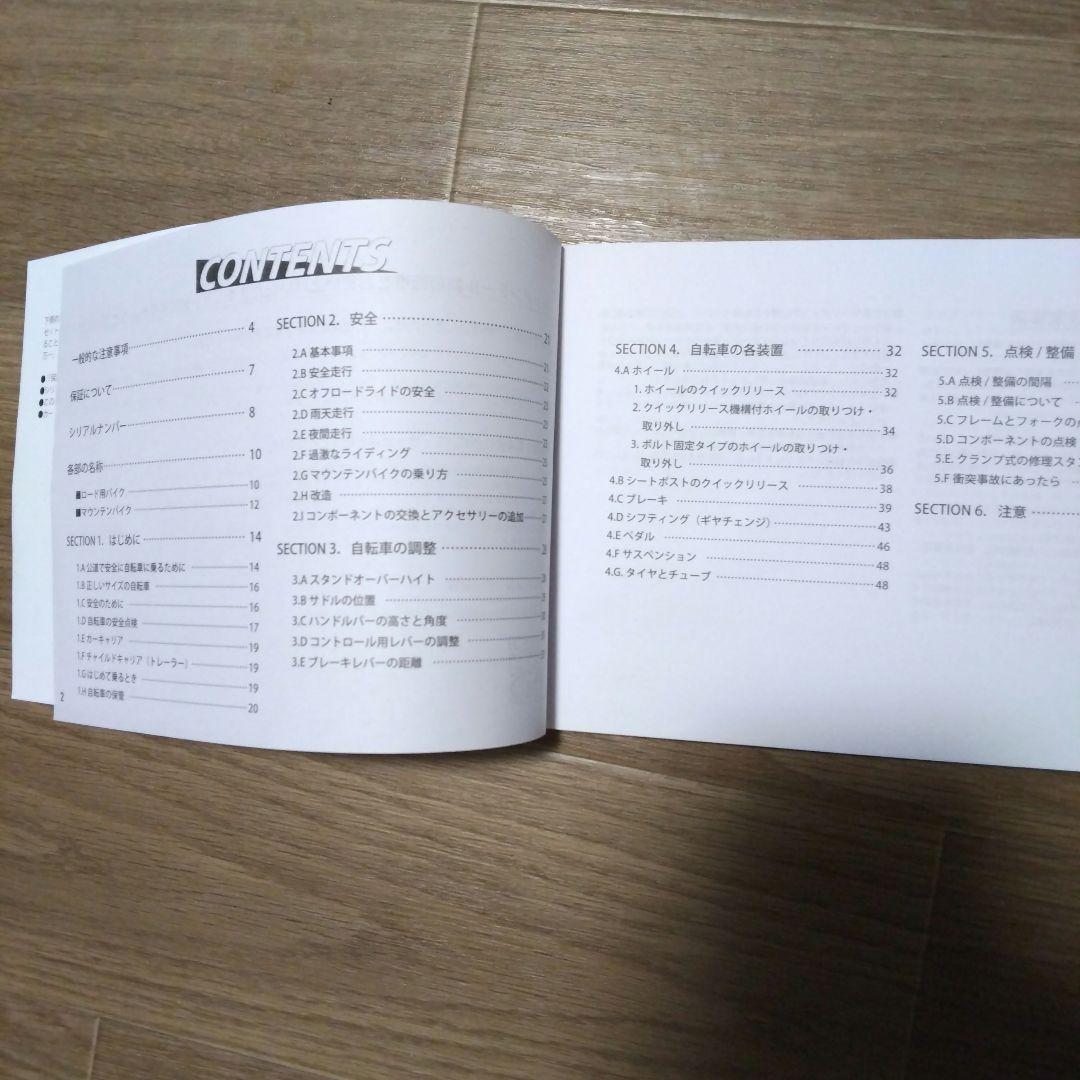 CONTENTS
一般的な注意事項 4
保証について 7
シリアルナンバー 8
各部の名称 10
■ロード用バイク 10
■マウンテンバイク 12
SECTION 1. はじめに 14
1.A 公道で安全に自転車に乗るために 14
1.B 正しいサイズの自転車 16
1.C 安全のために 16
1.D 自転車の安全点検 17
1.E カーキャリア 19
1.F チャイルドキャリア（トレーラー） 19
1.G はじめて乗るとき 19
1.H 自転車の保管 20
2
SECTION 2. 安全 21
2.A 基本事項 21
2.B 安全走行 21
2.C オフロードライドの安全
2.D 雨天走行
2.E 夜間走行
2.F 過激なライディング
2.G マウンテンバイクの乗り方
2.H 改造
2.I コンポーネントの交換とアクセサリーの追加
SECTION 3. 自転車の調整
3.A スタンドオーバーハイト
3.B サドルの位置
3.C ハンドルバーの高さと角度
3.D コントロール用レバーの調整
3.E ブレーキレバーの距離
SECTION 4. 自転車の各装置 32
4.A ホイール 32
1. ホイールのクイックリリース 32
2. クイックリリース機構付ホイールの取りつけ・
取り外し 34
3. ボルト固定タイプのホイールの取りつけ・
取り外し 36
4.B シートポストのクイックリリース 38
4.C ブレーキ 39
4.D シフティング（ギヤチェンジ） 43
4.E ペダル 46
4.F サスペンション 48
4.G. タイヤとチューブ 48
SECTION 5. 点検 / 整備
5.A 点検 / 整備の間隔
5.B 点検 / 整備について
5.C フレームとフォークの
5.D コンポーネントの点検
5.E. クランプ式の修理スタ
5.F 衝突事故にあったら
SECTION 6. 注意